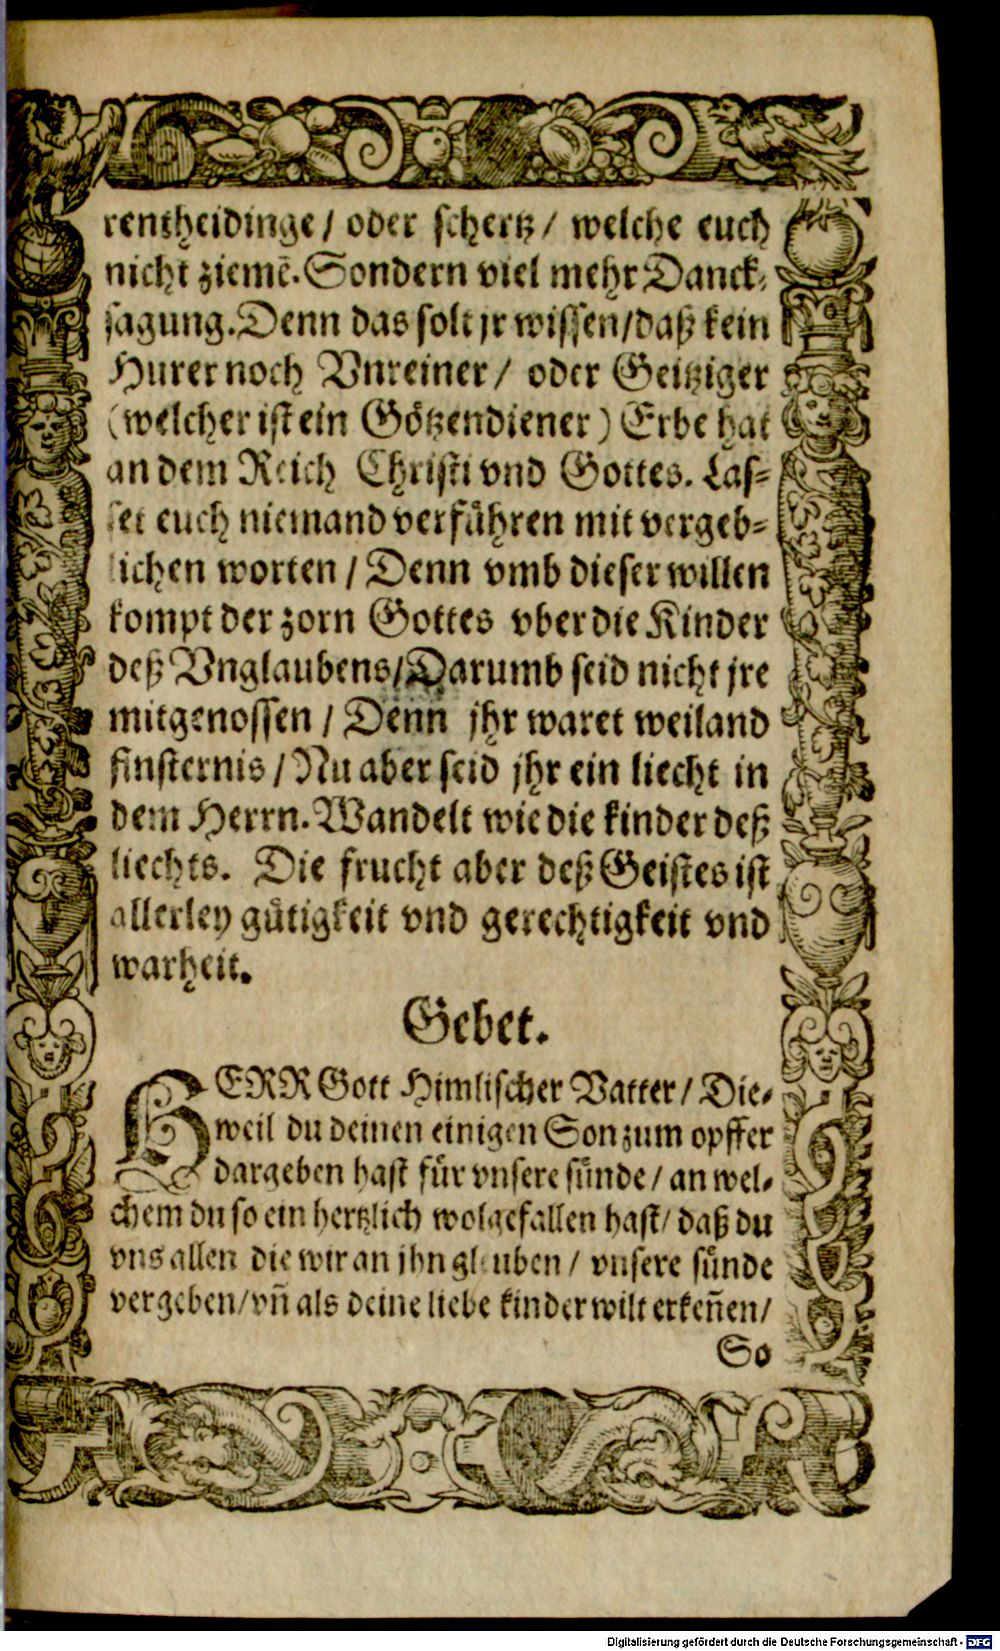 rentheidinge / oder schertz / welche euch
nicht ziemē. Sondern viel mehr Danck-
sagung. Denn das solt jr wissen / daß kein
Hurer noch Vnreiner / oder Geitziger
(welcher ist ein Götzendiener) Erbe hat
an dem Reich Christi vnd Gottes. Las-
set euch niemand verführen mit vergeb-
lichen worten / Denn vmb dieser willen
kompt der zorn Gottes vber die Kinder
deß Vnglaubens / Darumb seid nicht jre
mitgenossen / Denn jhr waret weiland
finsternis / Nu aber seid jhr ein liecht in
dem Herrn. Wandelt wie die kinder deß
liechts. Die frucht aber deß Geistes ist
allerley gütigkeit vnd gerechtigkeit vnd
warheit.
Gebet.
HERR Gott Himlischer Vatter / Die-
weil du deinen einigen Son zum opffer
dargeben hast für vnsere sünde / an wel-
chem du so ein hertzlich wolgefallen hast / daß du
vns allen die wir an jhn gleuben / vnsere sünde
vergeben / vñ als deine liebe kinder wilt erkeñen /
So
Digitalisierung gefördert durch die Deutsche Forschungsgemeinschaft - DFG